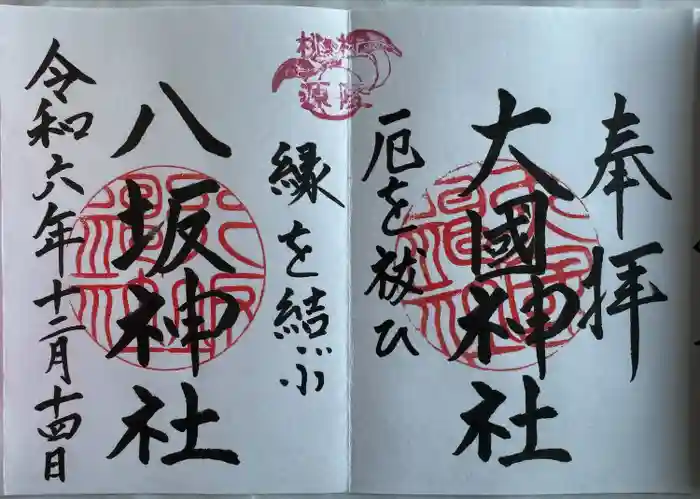 奉拝
大國神社
厄を祓ひ
縁を結ぶ
八坂神社
令和六年十二月十四日